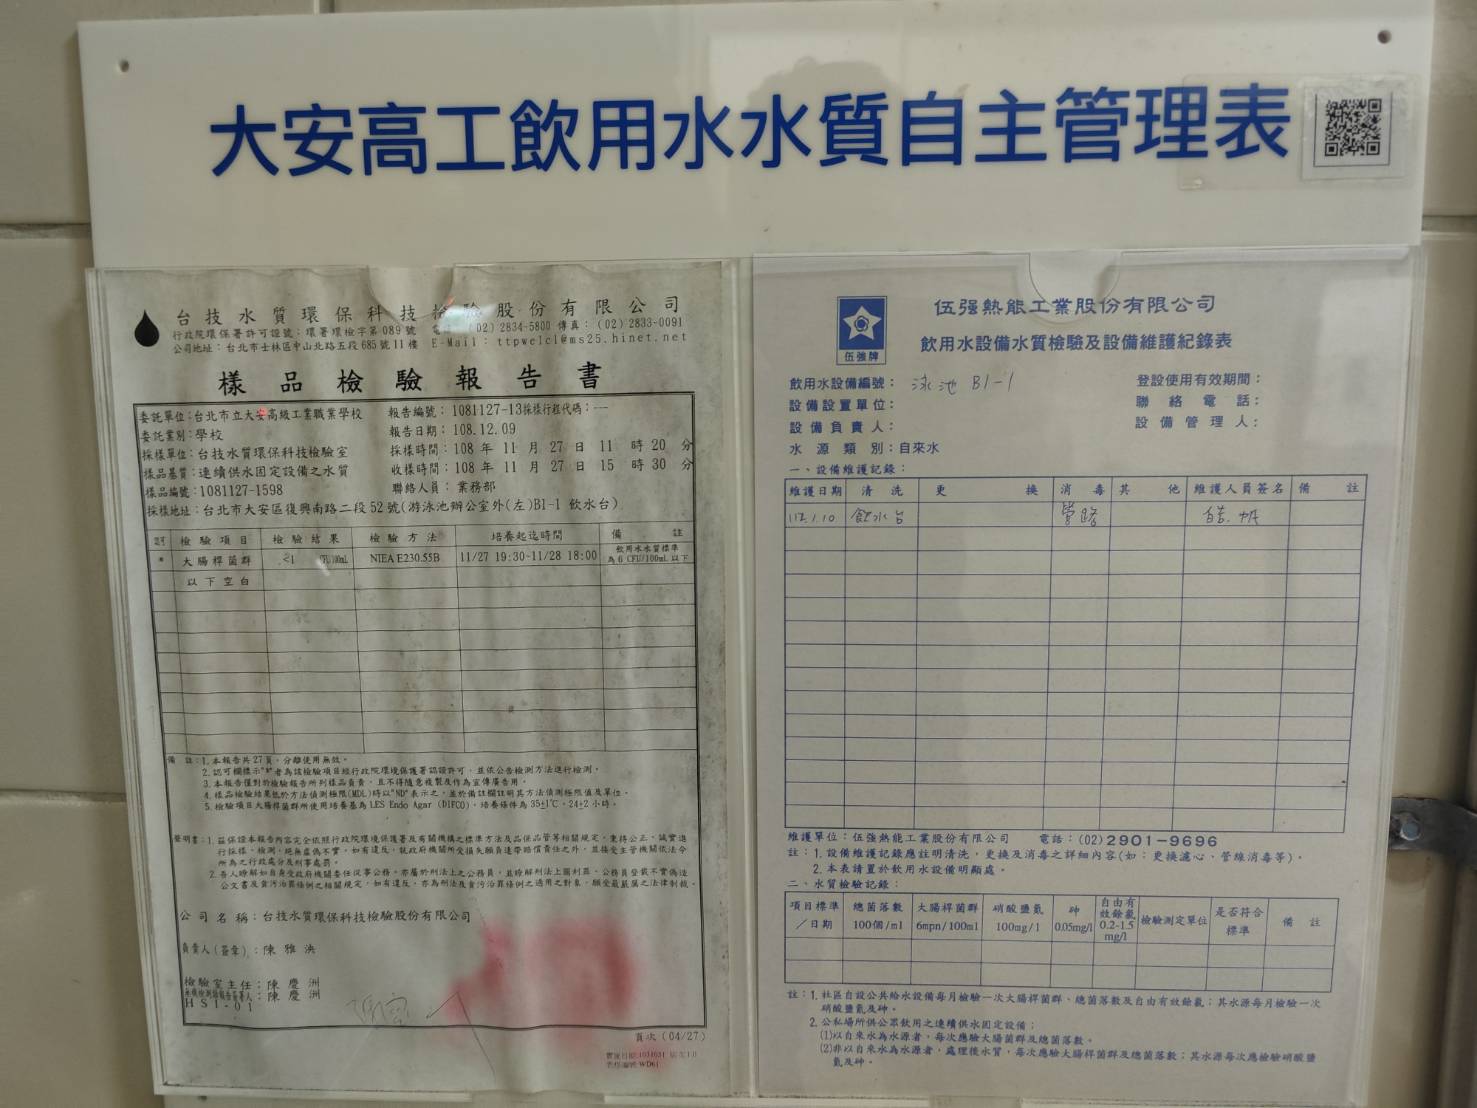 大安高工飲用水水質自主管理表
台技水質環保科技檢驗股份有限公司
行政院環保署許可證號：環署環檢字第089號 電話：(02)2834-5800 傳真：(02)2833-0091
公司地址：台北市士林區中山北路五段685號11樓 E-Mail：ttpwelcl@ms25.hinet.net
樣品檢驗報告書
委託單位：台北市立大安高級工業職業學校 報告編號：1081127-13採樣行程代碼：---
委託業別：學校 報告日期：108.12.09
採樣單位：台技水質環保科技檢驗室 採樣時間：108 年 11 月 27 日 11 時 20 分
樣品基質：連續供水固定設備之水質 收樣時間：108 年 11 月 27 日 15 時 30 分
樣品編號：1081127-1598 聯絡人員：業務部
採樣地址：台北市大安區復興南路二段52號(游泳池辦公室外(左)B1-1 飲水台)
認可 檢驗項目 檢驗結果 檢驗方法 培養起迄時間 備註
* 大腸桿菌群 <1 CFU/100mL NIEA E230.55B 11/27 19:30~11/28 18:00 飲用水水質標準
為6 CFU/100mL以下
以下空白
備註：1.本報告共27頁，分離使用無效。
2.認可欄標示"*"者為該檢驗項目經行政院環境保護署認證許可，並依公告檢測方法進行檢測。
3.本報告僅對於檢驗報告所列樣品負責，且不得隨意複製及作為宣傳廣告用。
4.樣品檢驗結果低於方法偵測極限(MDL)時以"ND"表示之，並於備註欄註明其方法偵測極限值及單位。
5.檢驗項目大腸桿菌群所使用培養基為LES Endo Agar (DIFCO)，培養條件為35±1℃，24±2小時。
聲明書：1.茲保證本報告內容完全依照行政院環境保護署及有關機構之標準方法及品保品管等相關規定，秉持公正、誠實進
行採樣、檢測，絕無虛偽不實，如有違反，就政府機關所受損失願負連帶賠償責任之外，並接受主管機關依法令
所為之行政處分及刑事處罰。
2.吾人瞭解如自身受政府機關委任從事公務，亦屬於刑法上之公務員，並瞭解刑法上圖利罪、公務員登載不實偽造
公文書及貪污治罪條例之相關規定，如有違反，亦為刑法及貪污治罪條例之適用之對象，願受最嚴厲之法律制裁。
公司名稱：台技水質環保科技檢驗股份有限公司
負責人(簽章)：陳雅泱
檢驗室主任：陳慶洲
陳慶洲
HSI-01
頁次(04/27)
伍強牌
伍强熱能工業股份有限公司
飲用水設備水質檢驗及設備維護紀錄表
飲用水設備編號：泳池 B1-1 登設使用有效期間：
設備設置單位： 聯絡電話：
設備負責人： 設備管理人：
水源類別：自來水
一、設備維護記錄：
維護日期 清洗 更換 消毒 其他 維護人員簽名 備註
112.1.10 飲水台 管路
維護單位：伍強熱能工業股份有限公司 電話：(02)2901-9696
註：1.設備維護記錄應註明清洗，更換及消毒之詳細內容(如：更換濾心、管線消毒等)。
2.本表請置於飲用水設備明顯處。
二、水質檢驗記錄：
項目標準／日期 總菌落數100個/ml 大腸桿菌群6mpn/100ml 硝酸鹽氮100mg/l 砷0.05mg/l 自由有效餘氯0.2-1.5mg/l 檢驗測定單位 是否符合標準 備註
註：1.社區自設公共給水設備每月檢驗一次大腸桿菌群、總菌落數及自由有效餘氯；其水源每月檢驗一次
硝酸鹽氮及砷。
2.公私場所供公眾飲用之連續供水固定設備：
(1)以自來水為水源者，每次應驗大腸桿菌群及總菌落數。
(2)非以自來水為水源者，處理後水質，每次應驗大腸桿菌群及總菌落數；其水源每次應檢驗硝酸鹽
氮及砷。